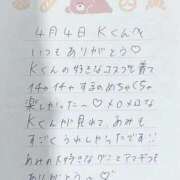 4月4日 Kくんへ
いつもありがとう♡
Kくんの好きなコスプレ着て
イチャイチャするのめちゃくちゃ
楽しかった〜♡メロメロな
Kくんが見れて、あみも
すごくうれしかったです!!
あみの大好きなグミとアマギフも
ありがとう〜♡